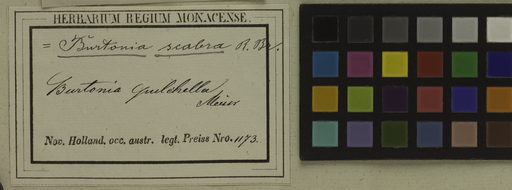 HERBARIUM REGIUM MONACENSE.
= Burtonia scabra R. Br.
Burtonia pulchella
Meisn
Nov. Holland. occ. austr. legt. Preiss Nro. 1173.